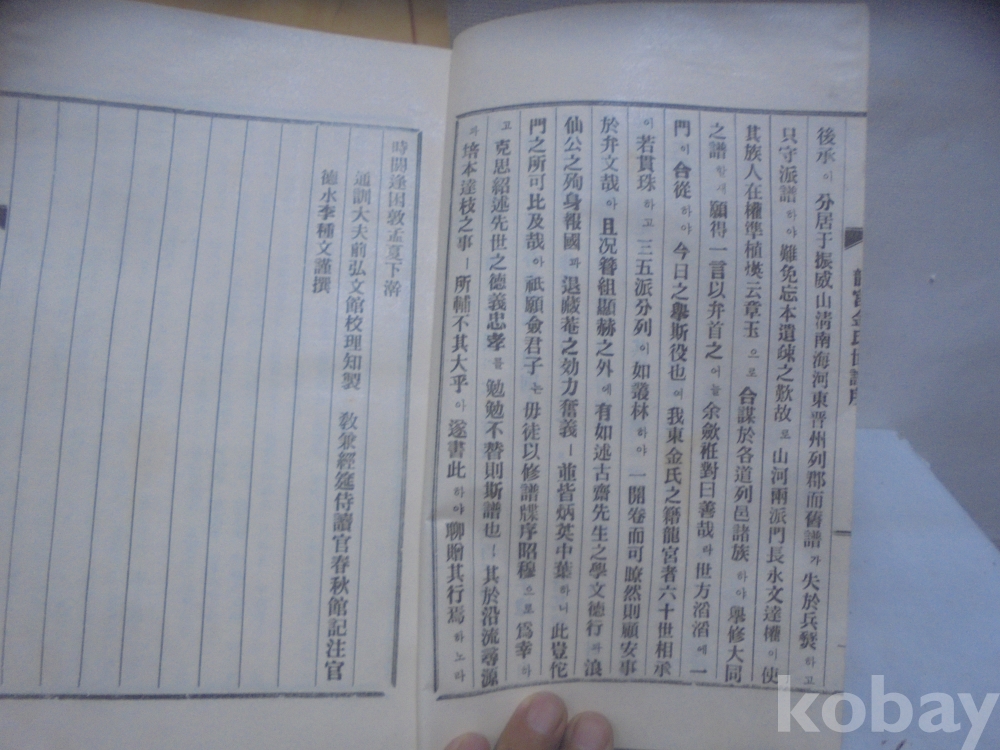 後承이 分居于振威山淸南海河東晋州列郡而舊譜가 失於兵燹하고
只守派譜하야 難免忘本遺疎之歎故로 山河兩派門長永文達權이 使
其族人在權準植煐云章玉으로 合謀於各道列邑諸族하야 擧修大同
之譜할새 願得一言以弁首之어늘 余斂袵對曰善哉라 世方滔滔에 一
門이 合從하야 今日之擧斯役也여 我東金氏之籍龍宮者六十世相承
이 若貫珠하고 三五派分列이 如叢林하야 一開卷而可瞭然則顧安事
於弁文哉아 且况簪組顯赫之外에 有如述古齋先生之學文德行과 浪
仙公之殉身報國과 退藏菴之効力奮義ㅣ 並皆炳英中葉하니 此豈佗
門之所可比及哉아 祇願僉君子는 毋徒以修譜牒序昭穆으로 爲幸하
고 克思紹述先世之德義忠孝를 勉勉不替則斯譜也ㅣ 其於沿流尋源
과 培本達枝之事ㅣ 所輔不其大乎아 遂書此하야 聊贈其行焉하노라
時閼逢困敦孟夏下澣
通訓大夫前弘文館校理知製 敎兼經筵侍讀官春秋館記注官
德水李種文謹撰
龍宮金氏世譜序
kobay